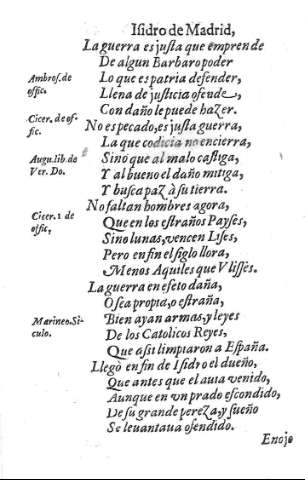 Isidro de Madrid,
La guerra es justa que emprende
De algun Barbaro poder
Lo que es patria defender,
Llena de justicia ofende,
Con daño le puede hazer.
No es pecado, es justa guerra,
La que codicia no encierra,
Sino que al malo castiga,
Y al bueno el daño mitiga,
Y busca paz à su tierra.
No faltan hombres agora,
Que en los estraños Payses,
Sino lunas, vencen Lises,
Pero en fin el siglo llora,
Menos Aquiles que Vlisses.
La guerra en efeto daña,
O sea propia, o estraña,
Bien ayan armas, y leyes
De los Catolicos Reyes,
Que assi limpiaron a España.
Llegò en fin de Isidro el dueño,
Que antes que el auia venido,
Aunque en vn prado escondido,
De su grande pereza, y sueño
Se leuantaua ofendido.
Enojo
Ambros. de
offic.
Cicer. de of-
fic.
Augu. lib. de
Ver. Do.
Cicer. 1 de
offic,
Marineo. Si-
culo.